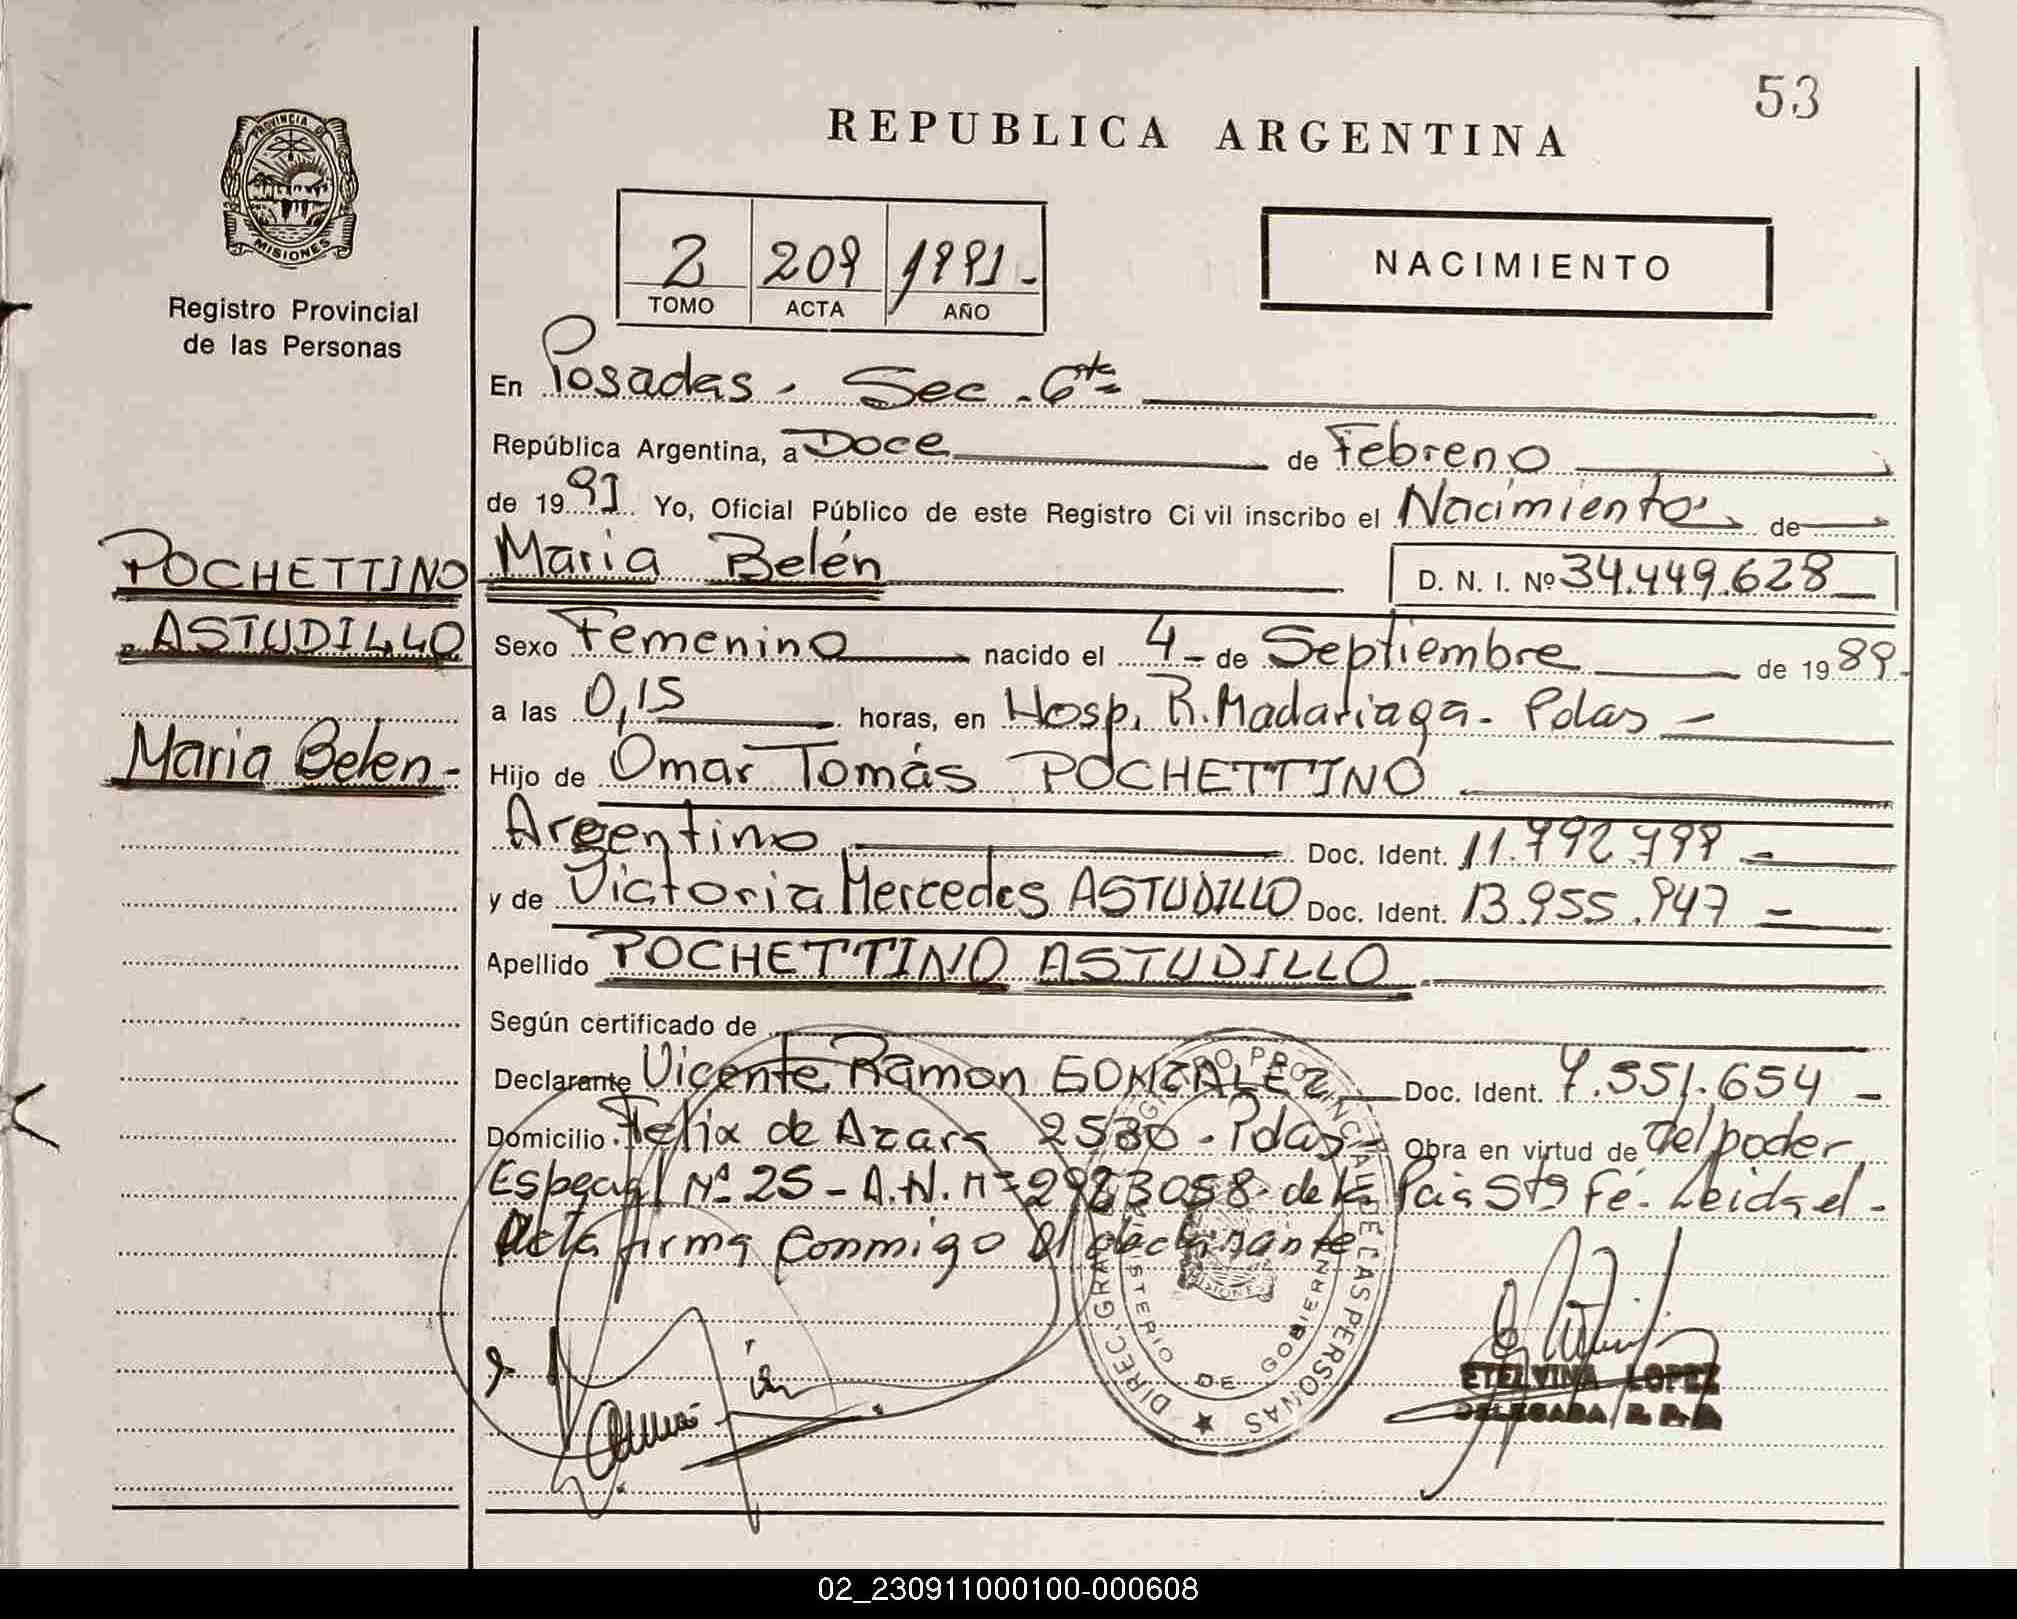 53
REPUBLICA ARGENTINA
PROVINCIA DE
MISIONES
Registro Provincial
de las Personas
2 209 1991-
TOMO ACTA AÑO
NACIMIENTO
En Posadas - Sec. 6ta
República Argentina, a Doce de Febrero
de 1991 Yo, Oficial Público de este Registro Civil inscribo el Nacimiento de
POCHETTINO Maria Belén D. N. I. Nº 34.449.628
ASTUDILLO Sexo Femenino nacido el 4 - de Septiembre de 1989-
a las 0,15 horas, en Hosp. R. Madariaga - Pdas -
Maria Belen - Hijo de Omar Tomás POCHETTINO
Argentino Doc. Ident.
y de Victoria Mercedes ASTUDILLO Doc. Ident. 13.955.947 -
Apellido POCHETTINO ASTUDILLO
Según certificado de
Declarante Vicente Ramon GONZALEZ Doc. Ident. 7.551.654 -
Domicilio Felix de Azara 2580 - Pdas - Obra en virtud de del poder
Especial Nº 25 - A.N. nº 2923058 de la Pcia Sta Fé. Leida el -
Acta firma conmigo el declarante
DIREC. GRAL. REGISTRO PROVINCIAL DE LAS PERSONAS
MINISTERIO DE GOBIERNO
MISIONES
ETELVINA LOPEZ
DELEGADA R. P. P.
02_230911000100-000608